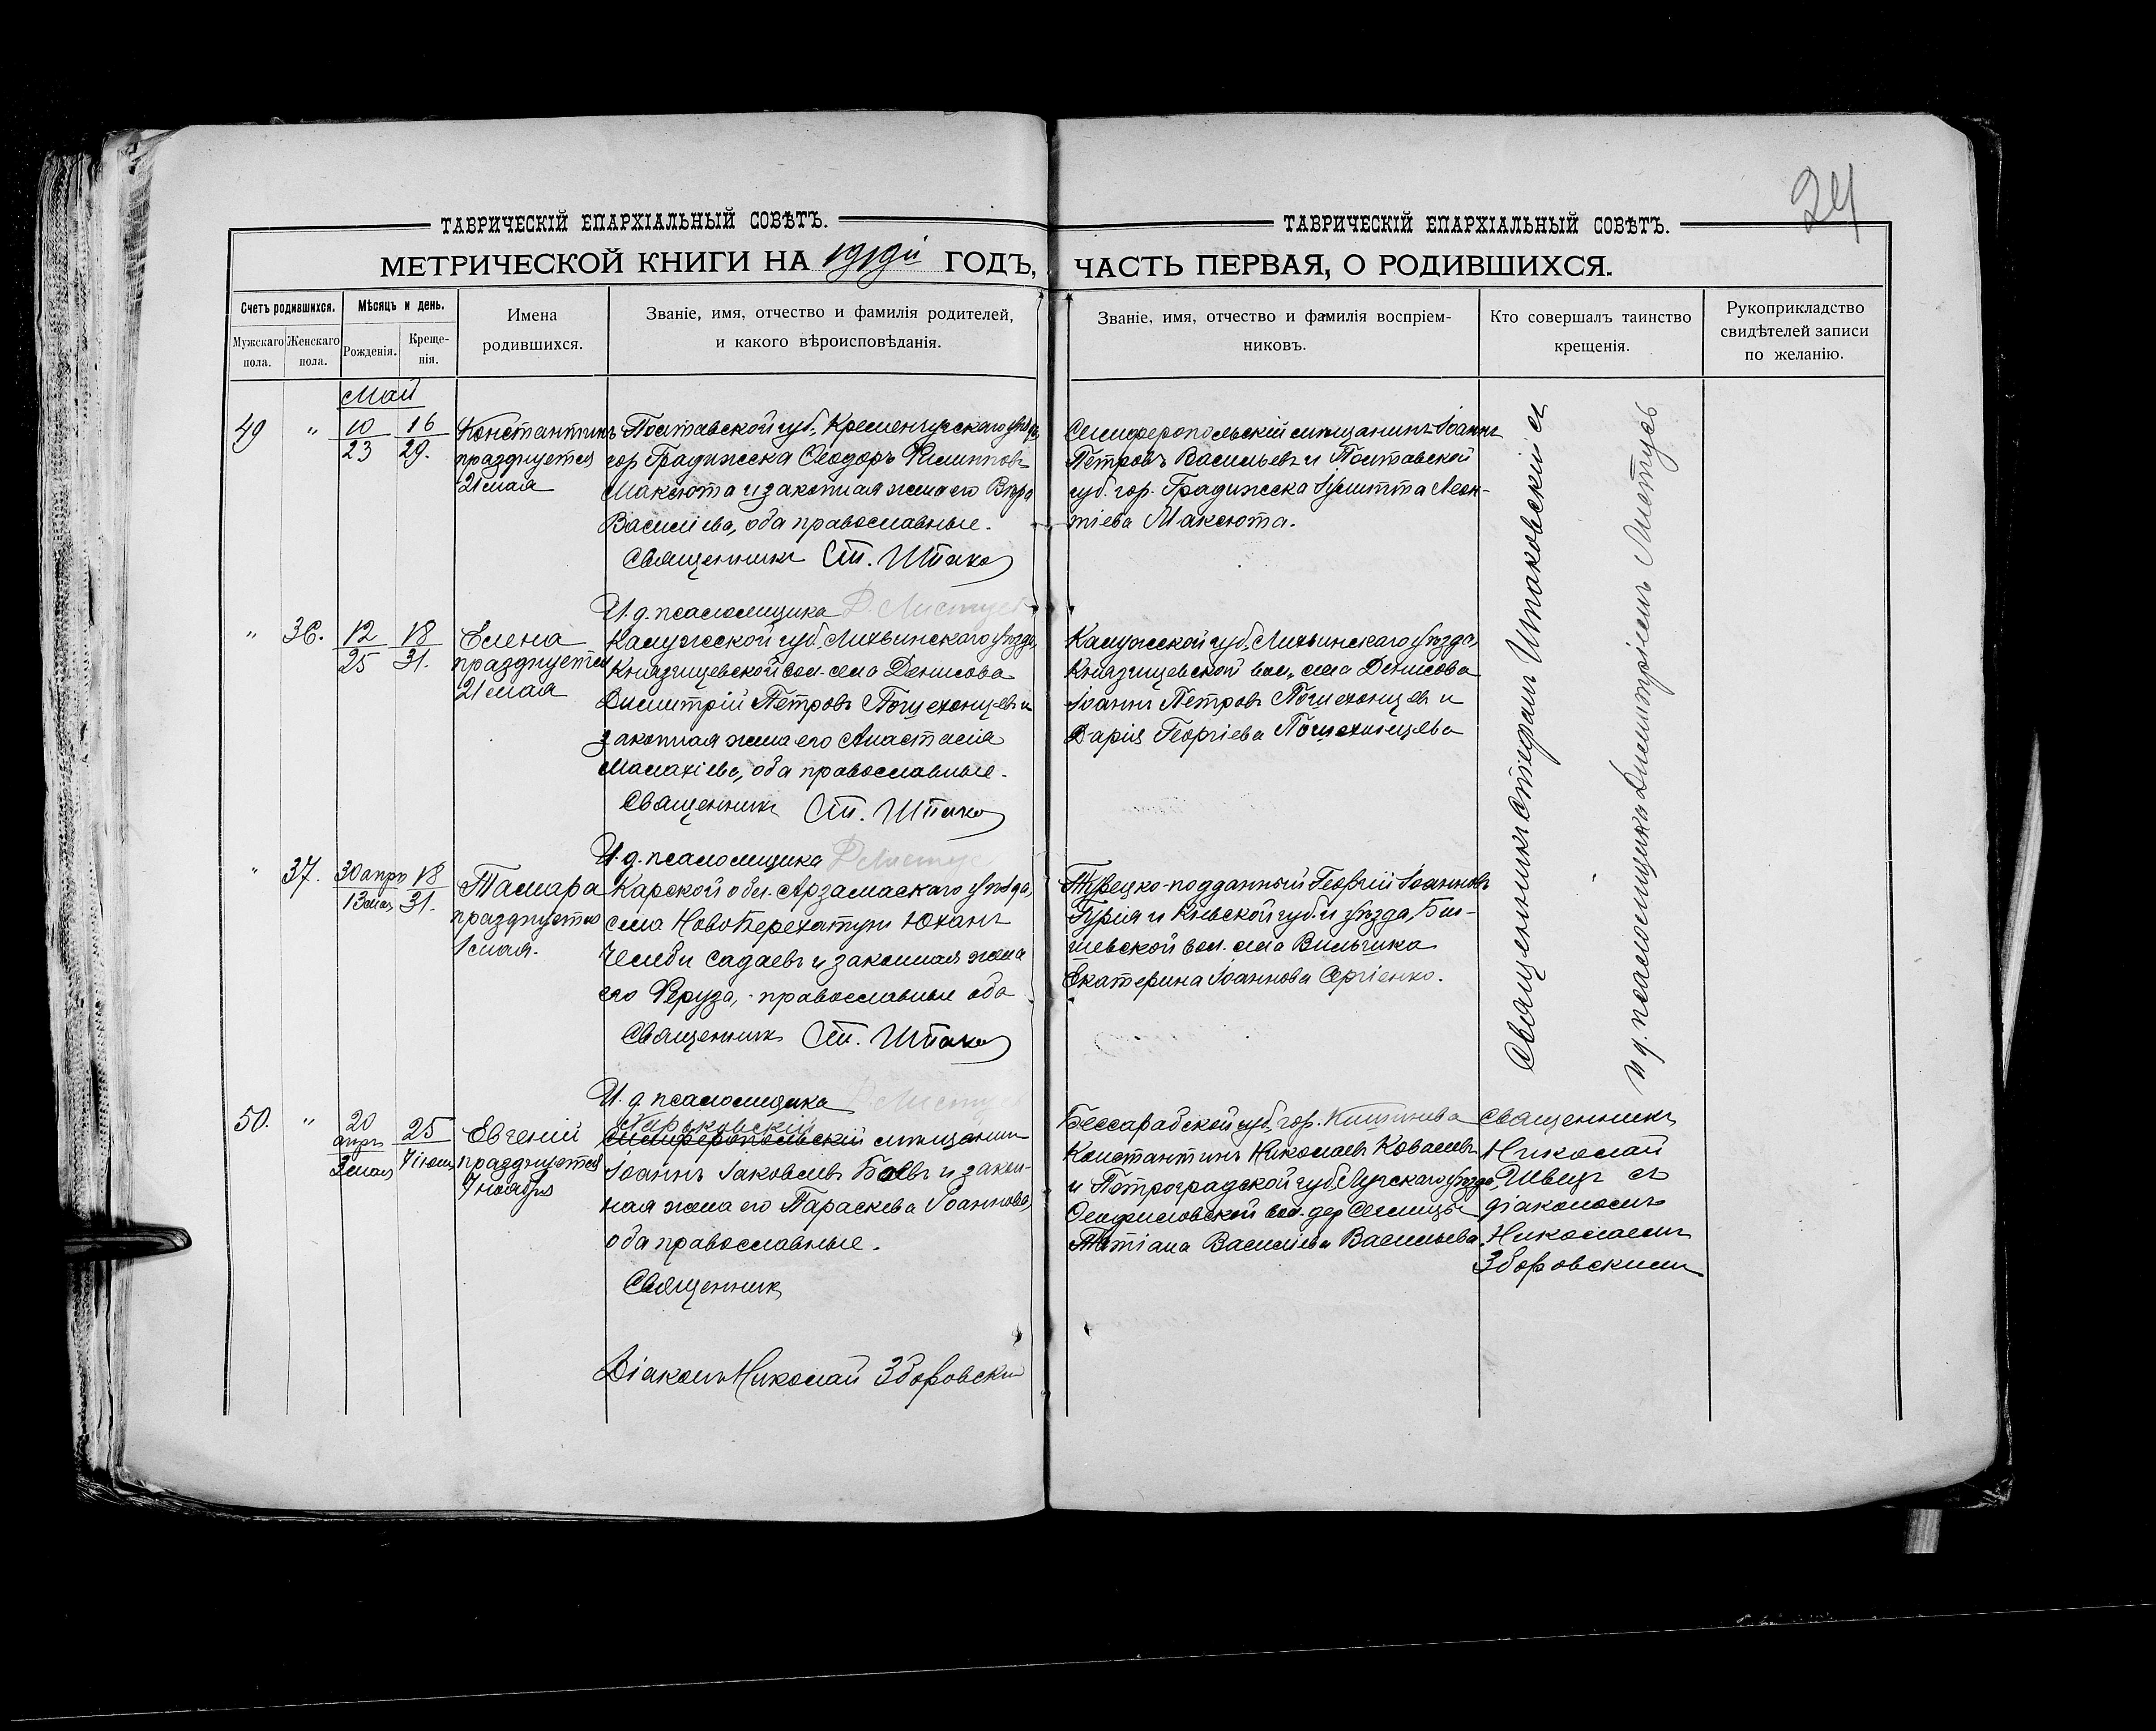 24
ТАВРИЧЕСКІЙ ЕПАРХІАЛЬНЫЙ СОВѢТЪ.
МЕТРИЧЕСКОЙ КНИГИ НА 1919й ГОДЪ,
Счетъ родившихся.
Мужскаго пола.
Женскаго пола.
Мѣсяцъ и день.
Рожденія.
Креще-
нія.
Имена
родившихся.
Званіе, имя, отчество и фамилія родителей,
и какого вѣроисповѣданія.
ТАВРИЧЕСКІЙ ЕПАРХІАЛЬНЫЙ СОВѢТЪ.
ЧАСТЬ ПЕРВАЯ, О РОДИВШИХСЯ.
Званіе, имя, отчество и фамилія воспріем-
никовъ.
Кто совершалъ таинство
крещенія.
Рукоприкладство
свидѣтелей записи
по желанію.
Май
49 " 10 16
23 29.
Константинъ
празднуется
21 мая
Полтавской губ., Кременчугскаго уѣзда
гор Градижска Ѳеодоръ Филипповъ
Максюта и законная жена его Вѣра
Василіева, оба православные.
Священникъ Ст. Шпако
И.д. псаломщика Д. Листуевъ
Симферопольскій мѣщанинъ Іоаннъ
Петровъ Васильевъ и Полтавской
губ. гор. Градижска Іулитта Леон-
тіева Максюта.
" 36. 12 18
25 31.
Елена
празднуется
21 мая
Калужской губ., Лихвинскаго уѣзда,
Князищевской вол. села Денисова
Димитрій Петровъ Пошехонцевъ и
законная жена его Анастасія
Малахіева, оба православные.
Священникъ Ст. Шпако
И.д. псаломщика Д. Листуе
Калужской губ., Лихвинскаго уѣзда,
Князищевской вол., села Денисова
Іоаннъ Петровъ Пошехонцевъ и
Дарія Георгіева Пошехонцева
" 37. 30 апр 18
13 мая 31.
Тамара
празднуется
1 мая.
Карской обл. Арзамаскаго уѣзда,
села Ново Керехатунъ Юханъ
Челеби Садаевъ и законная жена
его Феруза, православные оба
Священникъ Ст. Шпако
И.д псаломщика Д. Листуе
Турецко-подданный Георгій Іоанновъ
Гурія и Кіевской губ. и уѣзда, Бы-
шевской вол. села Вильшка
Екатерина Іоаннова Сергіенко.
Священникъ Стефанъ Шпаковскій съ
и д. псаломщика Димитріемъ Листуевъ
50. " 20 апр 25
3 мая 7 іюня
Евгеній
празднуется
7 ноября
Харьковскій
Симферопольскій мѣщанинъ
Іоаннъ Іаковлевъ Боевъ и закон-
ная жена его Параскева Іоаннова,
оба православные.
Священникъ
Діаконъ Николай Зборовскій
Бессарабской губ., гор. Кишинева
Константинъ Николаевъ Ковалевъ
и Петроградской губ., Лугскаго уѣзда,
вол. дер
Татіана Василіева Васильева.
Священникъ
Николай
Швецъ съ
діакономъ
Николаемъ
Зборовскимъ